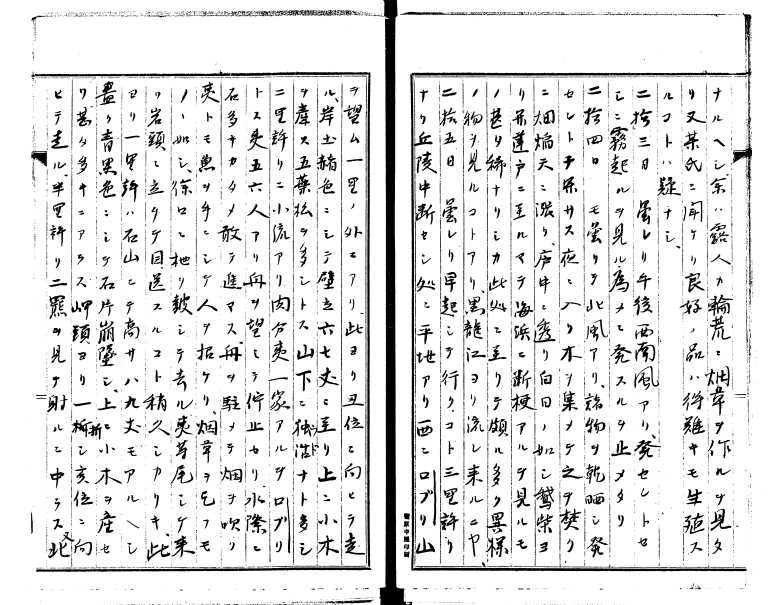 ナルヘシ余ハ露人カ輪荒ニ烟草ヲ作ルヲ見タ
リ又某氏ニ聞ケリ良好ノ品ハ得難キモ生殖ス
ルコトハ疑ナシ
二拾三日 曇レリ午後西南風アリ発セントセ
シニ霧起ルヲ見ル為メニ発スルヲ止メタリ
二拾四日 モ曇リテ北風アリ諸物ヲ乾晒シ発
セントテ果サス夜ニ入リ木ヲ集メテ之ヲ焚ク
ニ烟焔天ニ漲リ庐中ニ透リ白日ノ如シ鵞柴ヨ
リ蓬戸ニ至ルマテ海浜ニ断梗アルヲ見ルモ
甚タ稀ナリシカ此処ニ至リテ頗ル多ク異様
ノ物ヲ見ルコトアリ黒龍江ヨリ流レ来ルニヤ
二拾五日 曇レリ早起シテ行クコト三里許リ
ナリ丘陵中断セシ処ニ平地アリ西ニロブリ山
ヲ望ム一里ノ外ニアリ此ヨリ丑位ニ向ヒテ走
ル岸土赭色ニシテ壁立六七丈ニ至リ上ニ小木
ヲ産ス五葉松ヲ多シトス山下ニ独活ナト多シ
二里許リニ小流アリ肉分夷一家アルヲロブリ
トス夷五六人アリ舟ヲ望ミテ佇止セリ水際ニ
石多キカタメ敢テ進マス舟ヲ駐メテ烟ヲ吹ク
夷トモ魚ヲ手ニシテ人ヲ招ケリ烟草ヲ乞フモ
ノヽ如シ徐ロニ柂リ皷シテ去ル夷等尾シテ来
リ岩頭ニ立チテ目送スルコト稍久シカリキ此
ヨリ一里許ハ石山ニテ高サハ九丈モアルヘシ
盡ク青黒色ニシテ石片崩墜シ上ニ小木ヲ産セ
リ甚タ多キニアラス岬頭ヨリ一折シ亥位ニ向
ヒテ走ル半里許リ二羆ヲ見テ射ルニ中ラス又北